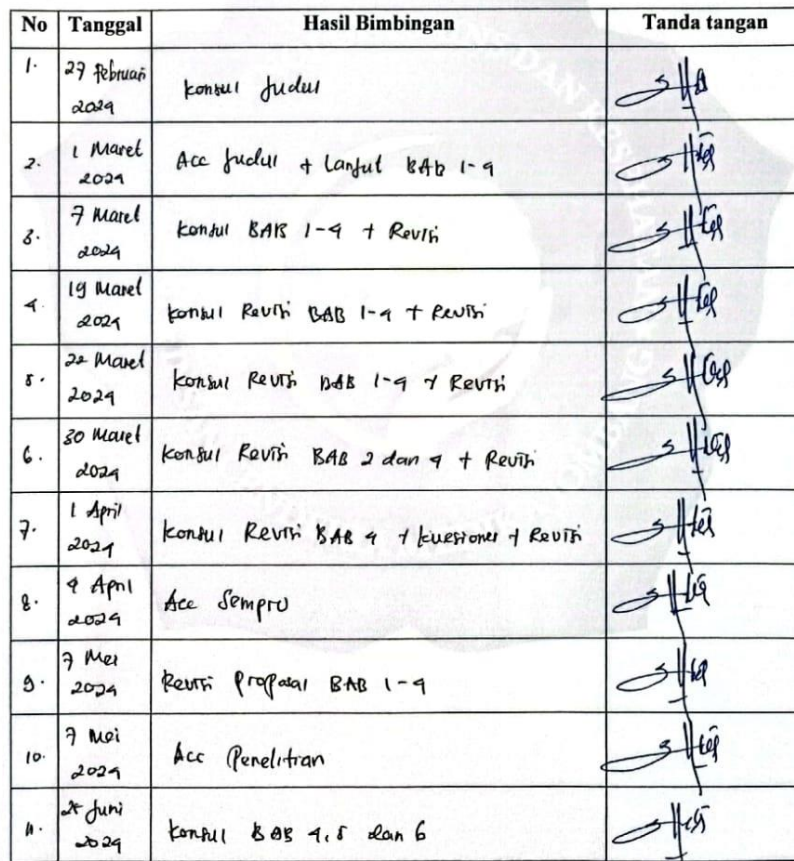 No Tanggal Hasil Bimbingan Tanda tangan
1. 27 februari
2024
konsul Judul
2. 1 Maret
2024
Acc Judul + Lanjut BAB 1-4
3. 7 Maret
2024
konsul BAB 1-4 + Revisi
4. 19 Maret
2024
konsul Revisi BAB 1-4 + Revisi
5. 22 Maret
2024
konsul Revisi BAB 1-4 + Revisi
6. 30 Maret
2024
konsul Revisi BAB 2 dan 4 + Revisi
7. 1 April
2024
konsul Revisi BAB 4 + kuesioner + Revisi
8. 4 April
2024
Acc Sempro
9. 7 Mei
2024
Revisi proposal BAB 1-4
10. 7 Mei
2024
Acc Penelitian
11. Juni
2024
konsul BAB 4,5 dan 6